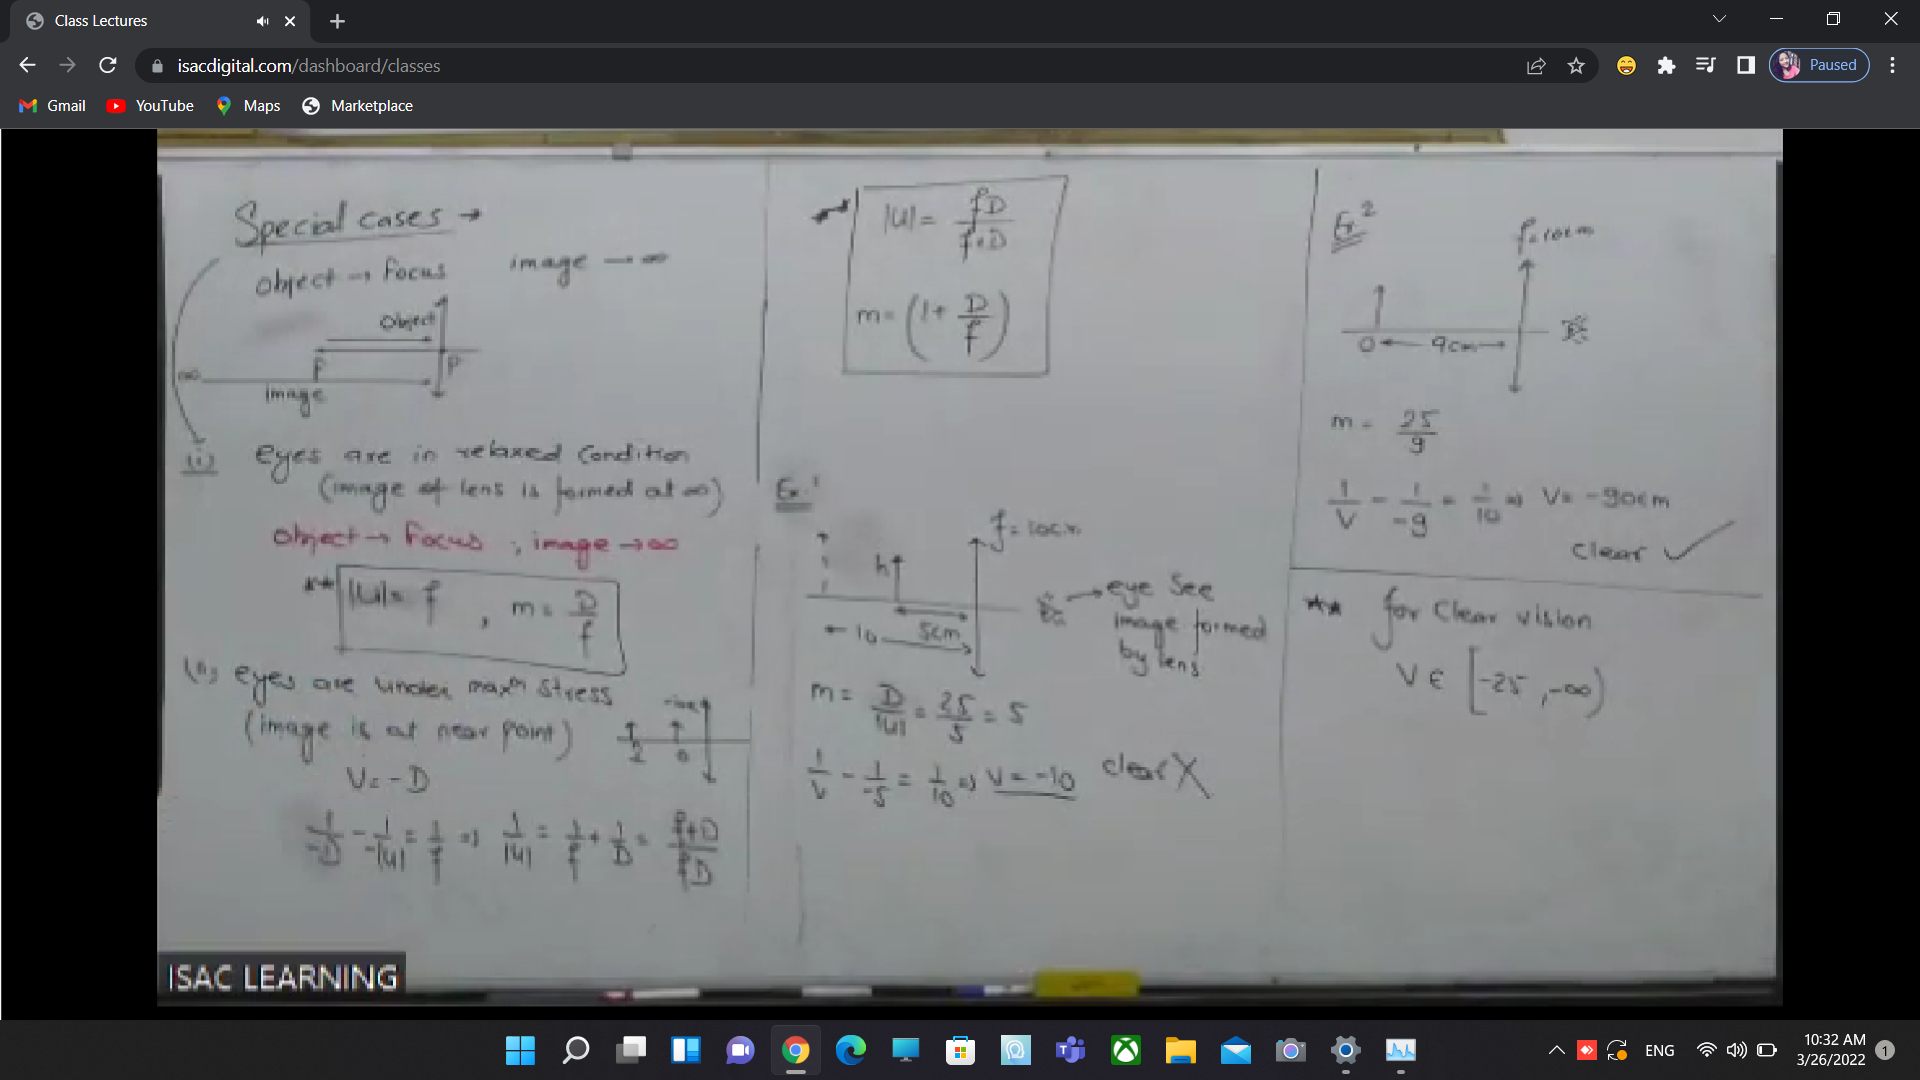 Class Lectures
isacdigital.com/dashboard/classes
Paused
Gmail YouTube Maps Marketplace
Special cases →
object → Focus image → ∞
object
F P
∞
image
(i) eyes are in relaxed condition
(image of lens is formed at ∞)
object → Focus , image → ∞
** |U| = f , m = D/f
(ii) eyes are under maxm stress
(image is at near point)
-ive
I O
V = -D
1/-D - 1/-|u| = 1/f ⇒ 1/|u| = 1/f + 1/D = f+D/fD
|U| = fD/f+D
m = (1 + D/f)
Ex 1
f = 10cm
h
5cm
10
→ eye See
image formed
by lens
m = D/|u| = 25/5 = 5
1/v - 1/-5 = 1/10 ⇒ v = -10 clear X
Ex 2
f=10cm
O 9cm
m = 25/9
1/V - 1/-9 = 1/10 ⇒ V = -90cm
clear ✓
** for Clear vision
V ∈ [-25, -∞)
ISAC LEARNING
ENG
10:32 AM
3/26/2022
1